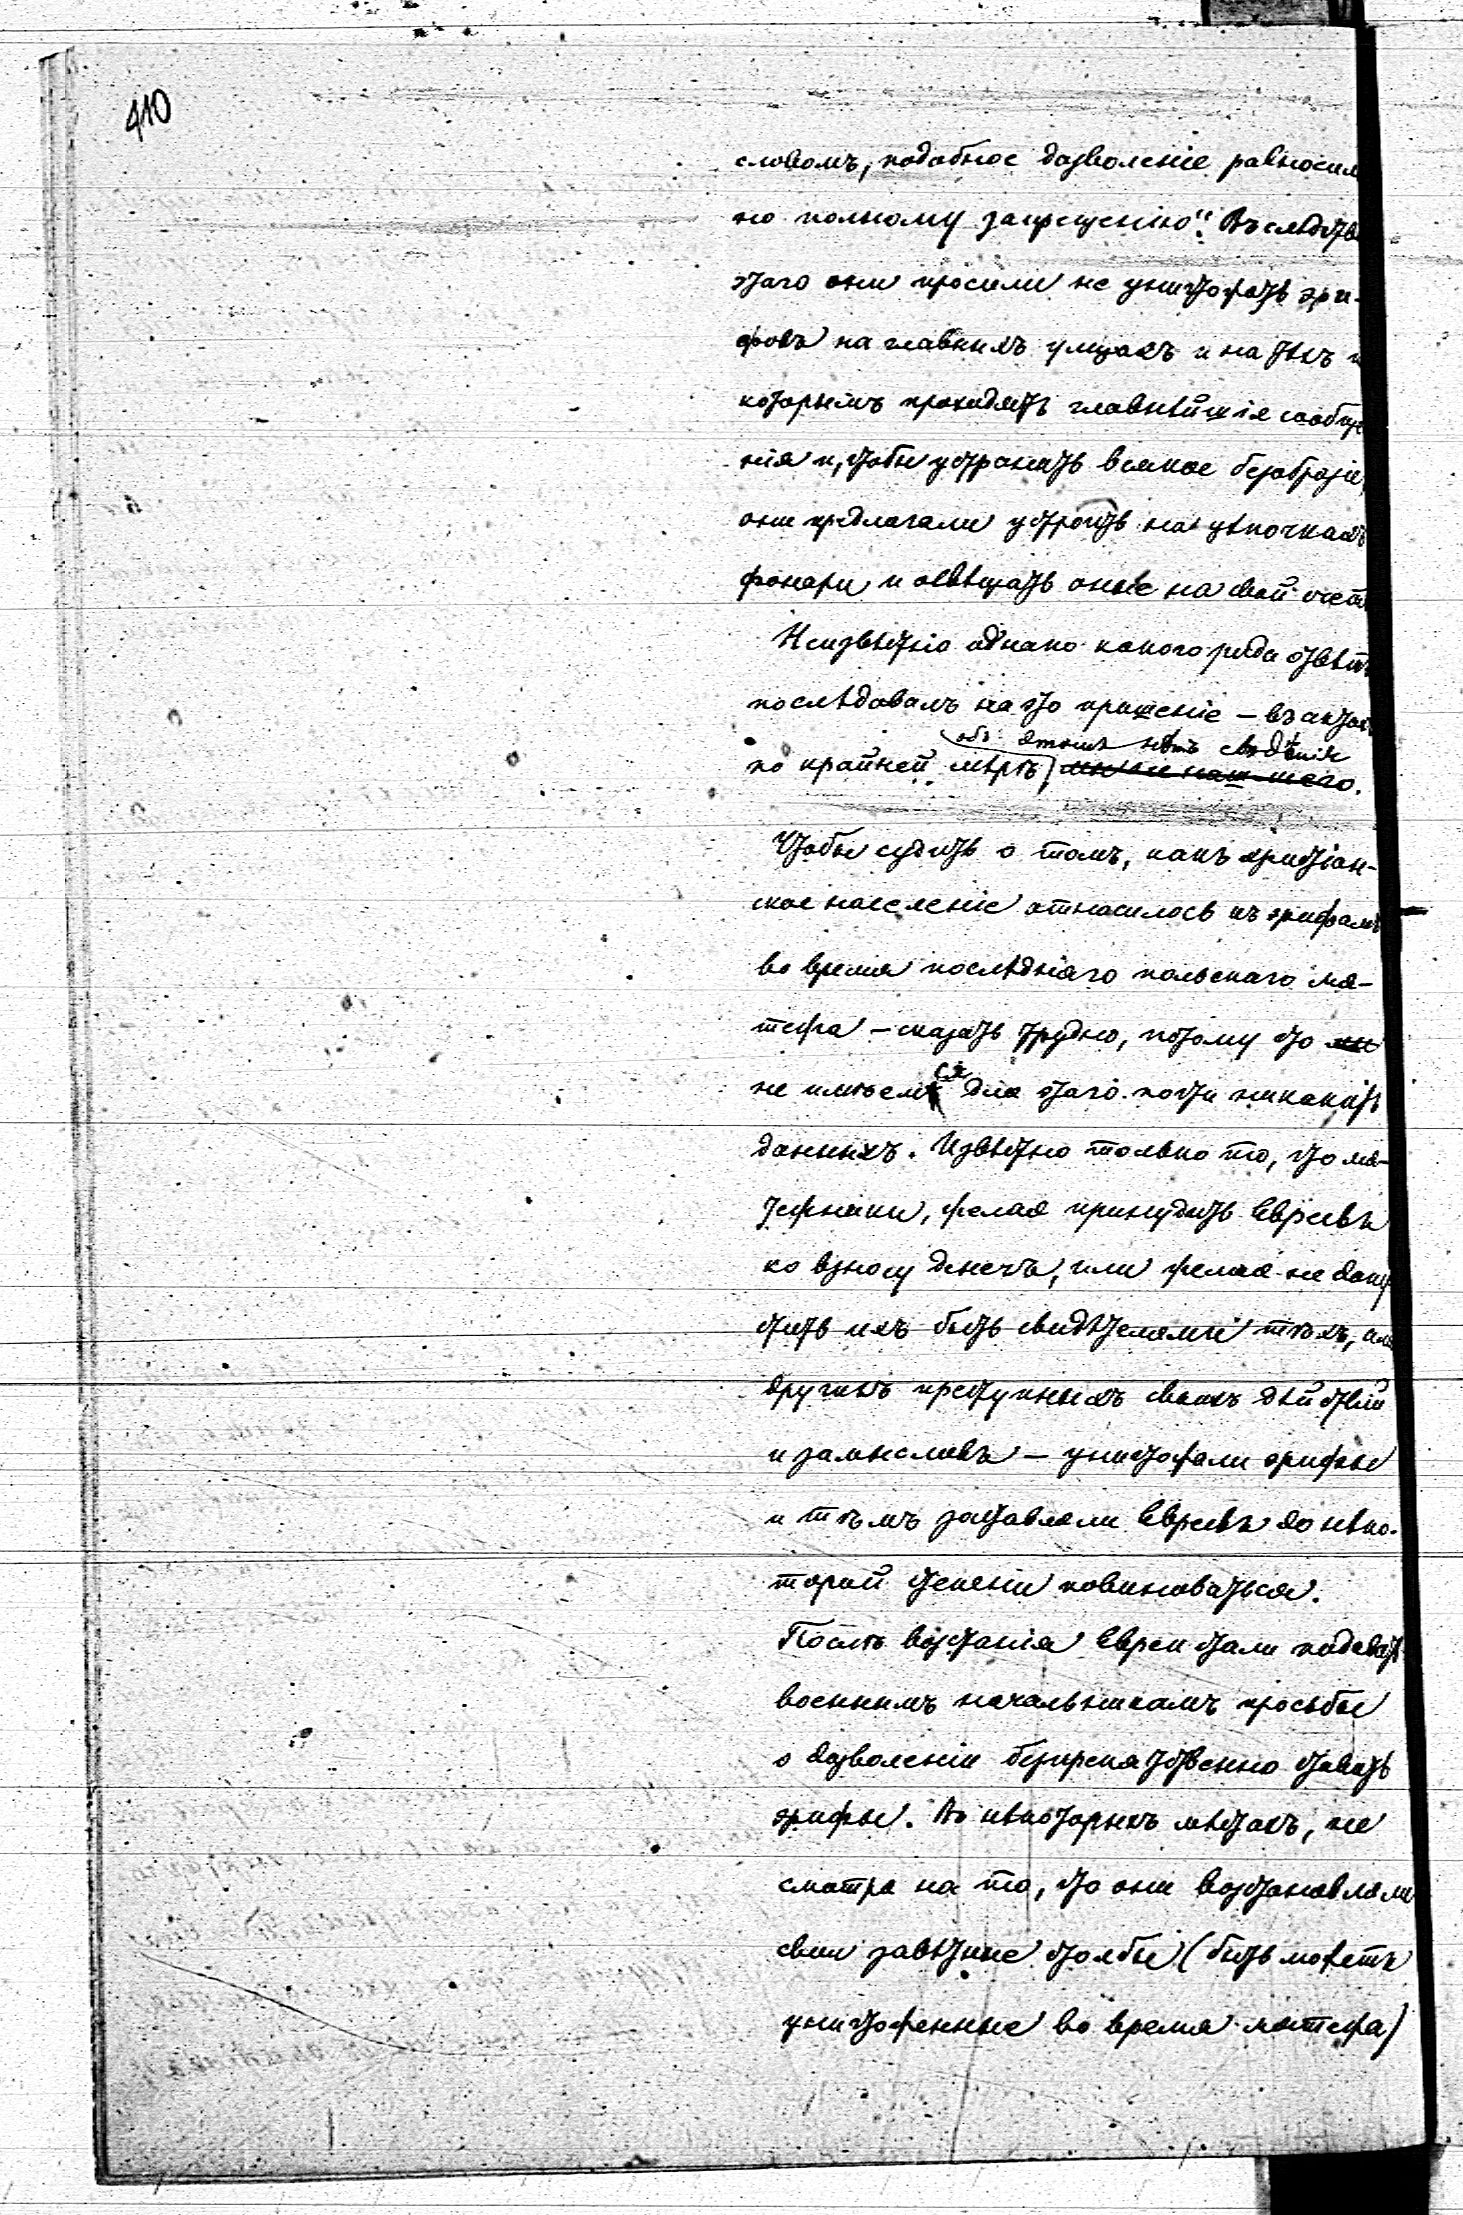 410
словомъ, подобное дозволеніе равносиль
но полному запрещенію". Въ слѣдствіе
этаго они просили не уничтожать эри-
фовъ на главныхъ улицахъ и на тѣхъ п
которымъ проходятъ главнѣйшія сообще
нія и, чтобы устранить всякое безобразіе,
они предлагали устроить на цѣпочкахъ
фонари и освѣщать оные на свой счетъ
Неизвѣстно однако какого рода отвѣтъ
послѣдовалъ на это прошеніе – въ актахъ
объ этомъ нѣтъ свѣдѣнія
по крайней мѣрѣ, мы не наш
Чтобы судить о томъ, какъ христіан-
ское населеніе относилось къ эрифамъ
во время послѣдняго польскаго мя-
тежа – сказать трудно, потому что мы
не имѣемся для этаго почти никакихъ
данныхъ. Извѣстно только то, что мя-
тежники, желая принудить Евреевъ
ко взносу денегъ, или желая не допу
стить ихъ быть свидѣтелями тѣхъ, или
другихъ преступныхъ своихъ дѣйствій
и замысловъ – уничтожали эрифы
и тѣмъ заставляли Евреевъ до нѣко-
торой степени повиноваться.
Послѣ возстанія Евреи стали подавать
военнымъ начальникамъ просьбы
о дозволеніи безпрепятственно ставить
эрифы. Въ нѣкоторыхъ мѣстахъ, не
смотря на то, что они возстановляли
свои завѣтные столбы (быть можетъ
уничтоженные во время мятежа)